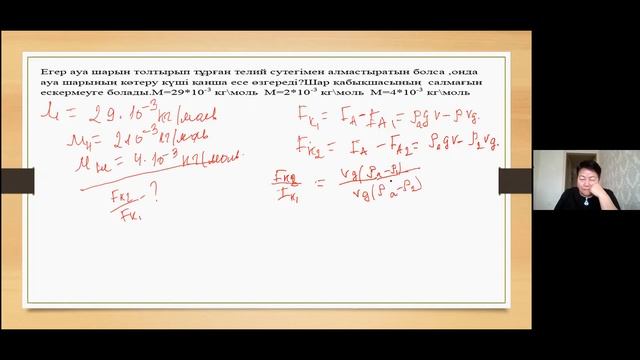 Егер ауа шарын толтырып тұрған телий сутегімен алмастыратын болса ,онда
ауа шарының көтеру күші қанша есе өзгереді?Шар қабықшасының салмағын
ескермеуге болады.М=29*10⁻³ кг\моль М=2*10⁻³ кг\моль М=4*10⁻³ кг\моль
= 29·10⁻³ кг/моль
= 2·10⁻³ кг/моль
= 4·10⁻³ кг/моль
Fк2/Fк1 - ?
Fк₁ = FА - FА1 = ρₐgV - ρVg.
Fк2 = FА - FА2 = ρₐgV - ρ₂Vg.
Fк2/Fк₁ = Vg(ρₐ-ρ)/Vg(ρₐ-ρ₂)